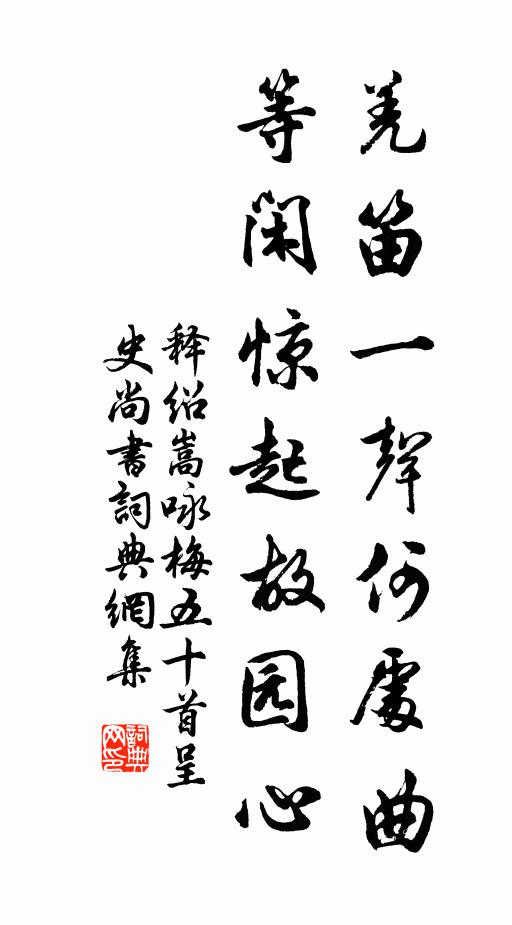 羌笛一聲何處曲
等闲惊起故园心
释绍嵩咏梅五十首呈
史尚書詞典網集
詞典
网印